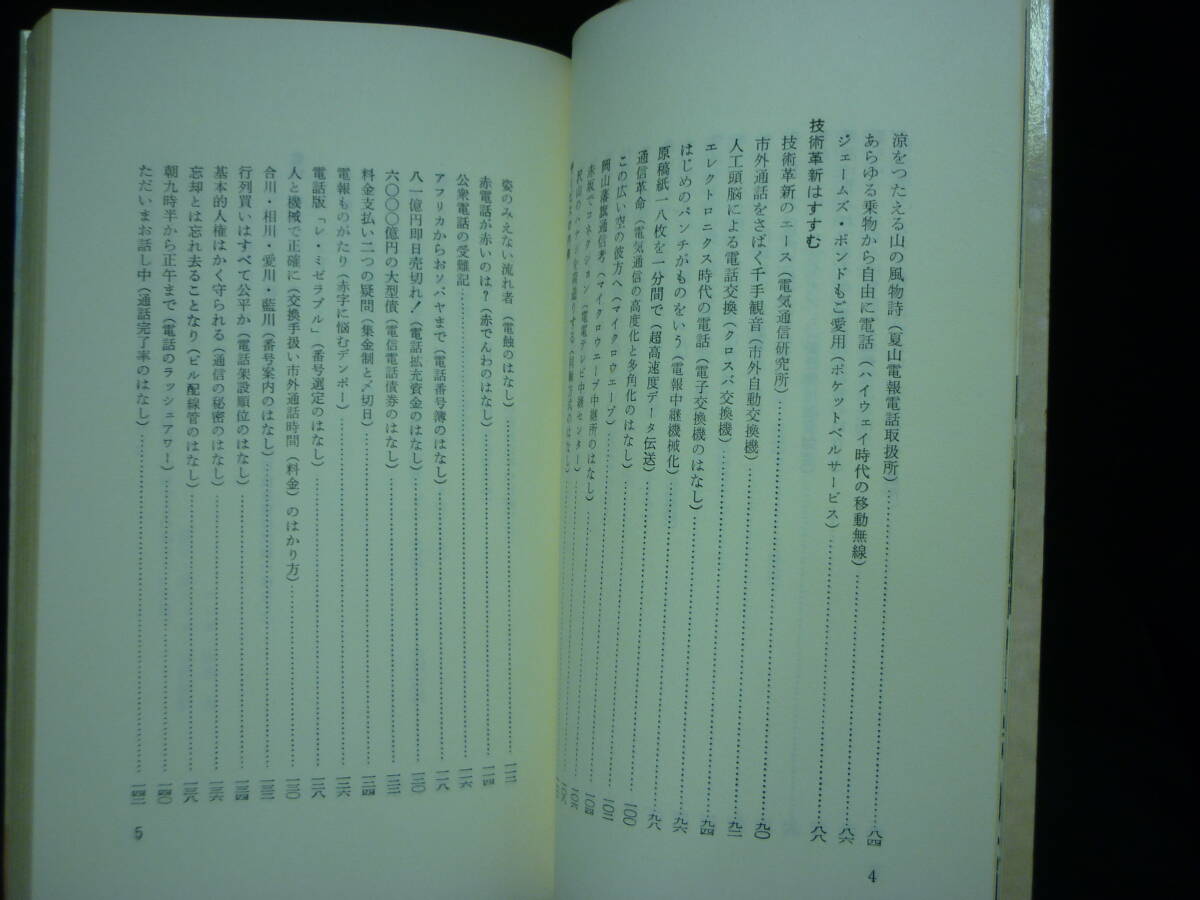 涼をつたえる山の風物詩（夏山電報電話取扱所）……八四
あらゆる乗物から自由に電話（ハイウェイ時代の移動無線）
ジェームズ・ボンドもご愛用（ポケットベルサービス）……八六
技術革新はすすむ
技術革新のエース（電気通信研究所）……八八
市外通話をさばく千手観音（市外自動交換機）……九〇
人工頭脳による電話交換（クロスバ交換機）……九二
エレクトロニクス時代の電話（電子交換機のはなし）……九四
はじめのパンチがものをいう（電報中継機械化）……九六
原稿紙一八枚を一分間で（超高速度データ伝送）……九八
通信革命（電気通信の高度化と多角化のはなし）……一〇〇
この広い空の彼方へ（マイクロウエーブ）……一〇二
岡山藩旗通信考（マイクロウエーブ中継所のはなし）……一〇四
赤坂でコネクション（電電テレビ中継センター）……一〇六
4
姿のみえない流れ者（電蝕のはなし）……一一二
赤電話が赤いのは？（赤でんわのはなし）……一一四
公衆電話の受難記……一一六
アフリカからおソバヤまで（電話番号簿のはなし）……一一八
八一億円即日売切れ！（電話拡充資金のはなし）……一二〇
六〇〇〇億円の大型債（電信電話債券のはなし）……一二二
料金支払い二つの疑問（集金制と〆切日）……一二四
電報ものがたり（赤字に悩むデンポー）……一二六
電話版「レ・ミゼラブル」（番号選定のはなし）……一二八
人と機械で正確に（交換手扱い市外通話時間（料金）のはかり方）……一三〇
合川・相川・愛川・藍川（番号案内のはなし）……一三二
行列買いはすべて公平か（電話架設順位のはなし）……一三四
基本的人権はかく守られる（通信の秘密のはなし）……一三六
忘却とは忘れ去ることなり（ビル配線管のはなし）……一三八
朝九時半から正午まで（電話のラッシュアワー）……一四〇
ただいまお話し中（通話完了率のはなし）……一四二
5